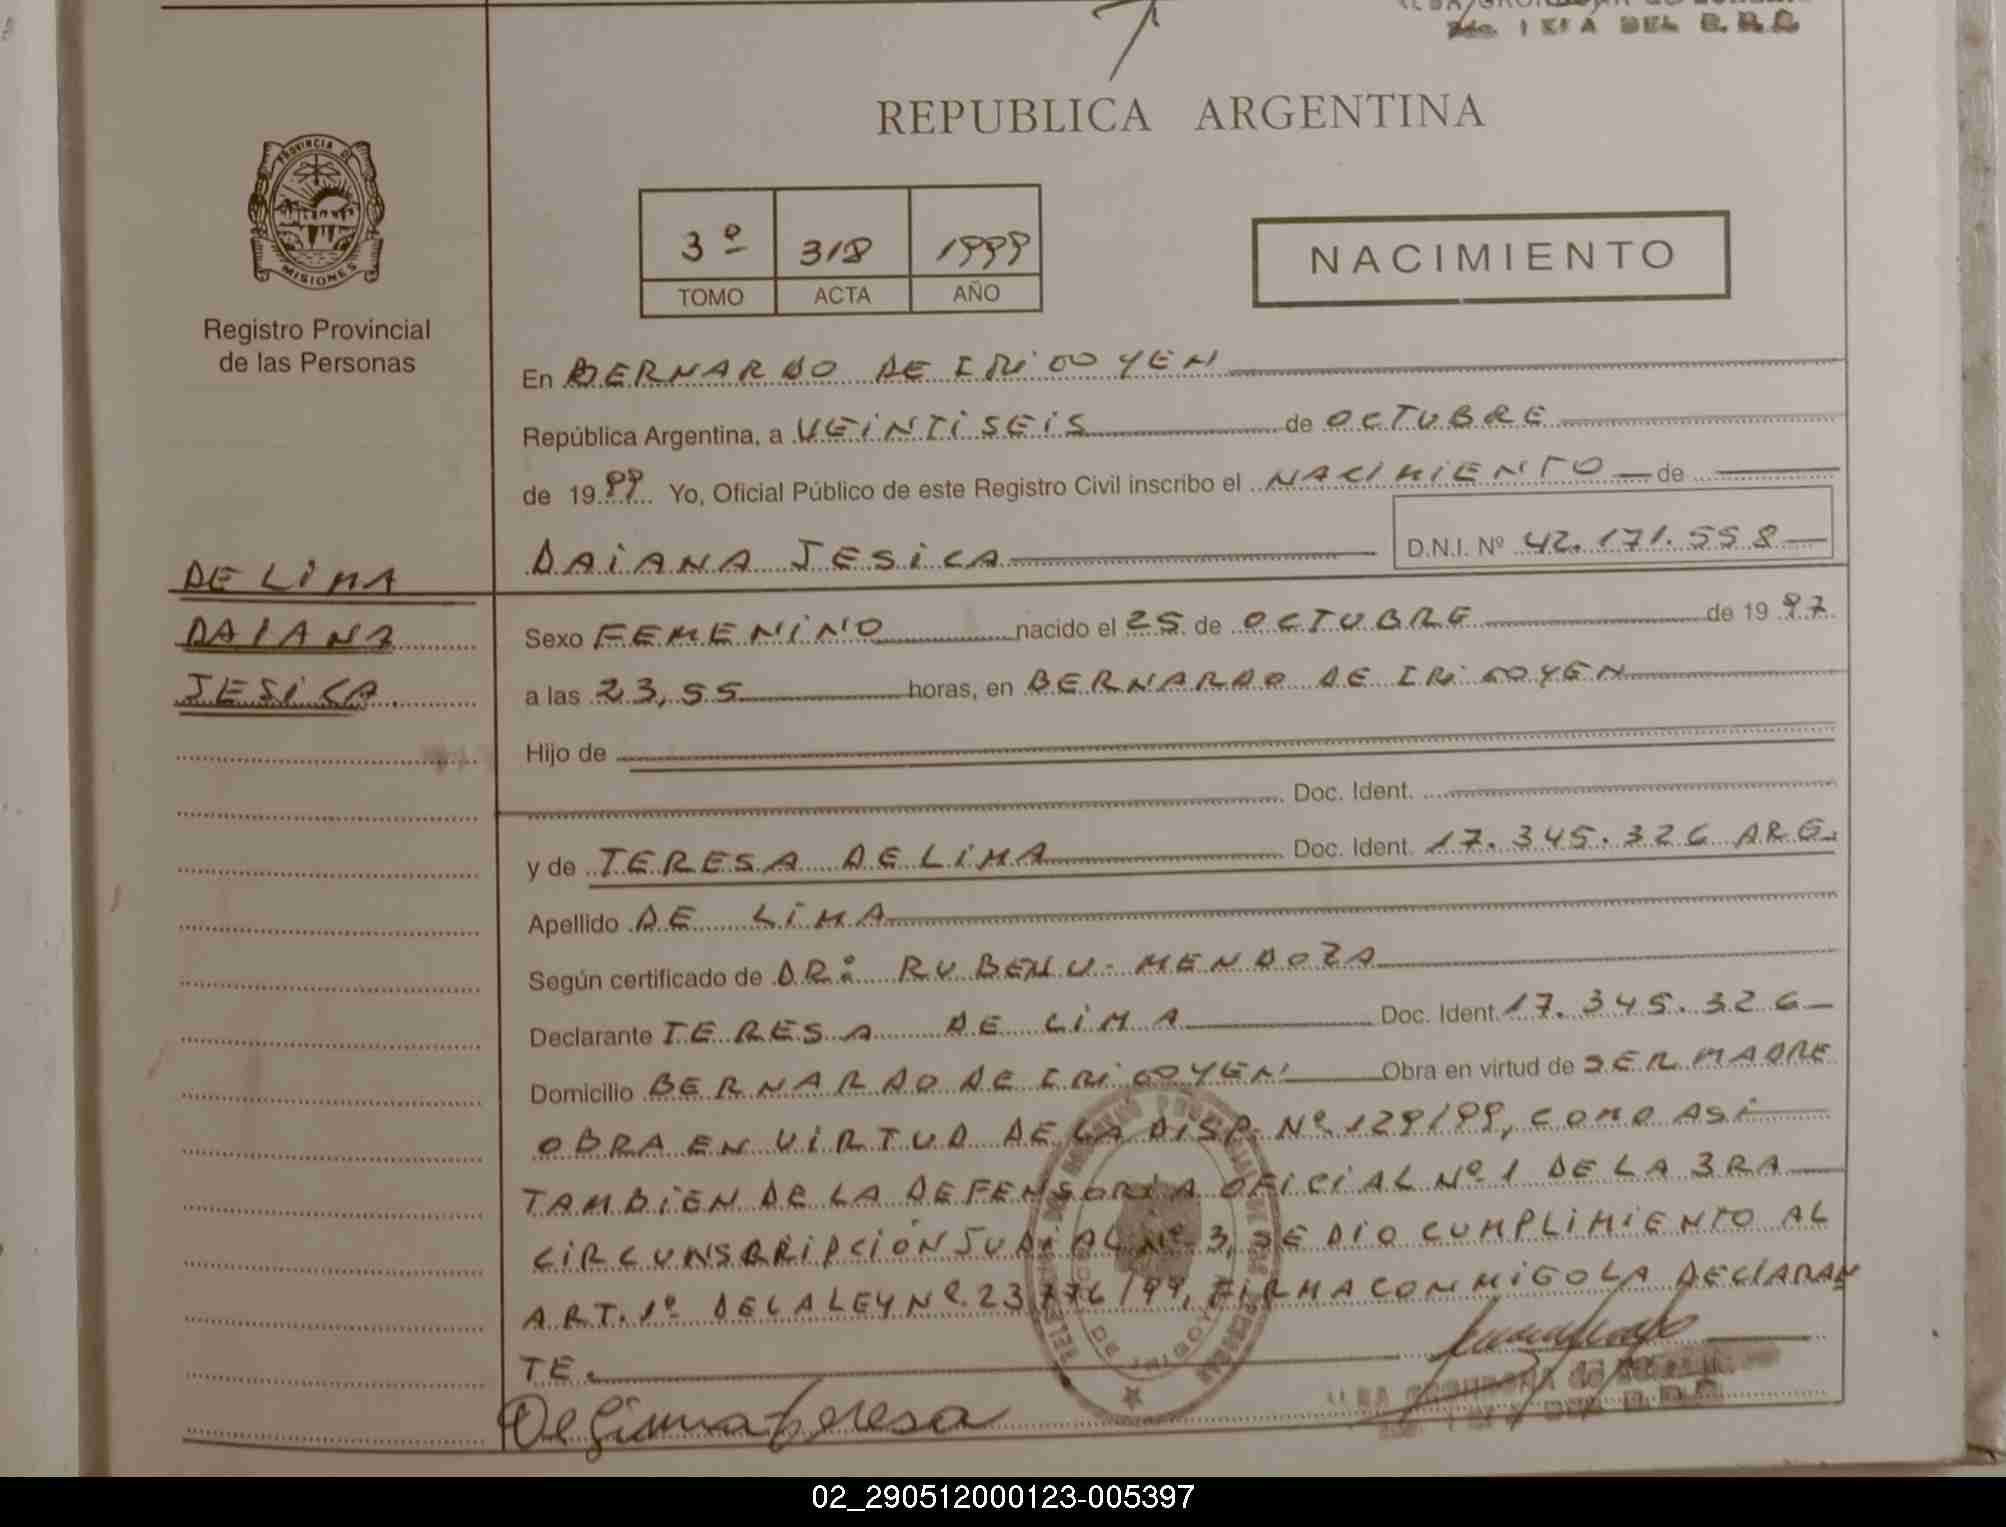 2do. JEFA DEL R.R.C
REPUBLICA ARGENTINA
PROVINCIA DE
MISIONES
Registro Provincial
de las Personas
3º 318 1999
TOMO ACTA AÑO
NACIMIENTO
En BERNARDO DE IRIGOYEN
República Argentina, a VEINTISEIS de OCTUBRE
de 1999. Yo, Oficial Público de este Registro Civil inscribo el NACIMIENTO de
DAIANA JESICA D.N.I. Nº 42.171.558
DE LIMA
DAIANA
JESICA.
Sexo FEMENINO nacido el 25 de OCTUBRE de 1997
a las 23,55 horas, en BERNARDO DE IRIGOYEN
Hijo de
Doc. Ident.
y de TERESA DE LIMA Doc. Ident. 17.345.326 ARG.
Apellido DE LIMA
Según certificado de DR: RUBEN U. MENDOZA
Declarante TERESA DE LIMA Doc. Ident. 17.345.326
Domicilio BERNARDO DE IRIGOYEN Obra en virtud de SER MADRE
OBRA EN VIRTUD DE LA DISP. Nº 129/99, COMO ASI
TAMBIEN DE LA DEFENSORIA OFICIAL Nº 1 DE LA 3RA
CIRCUNSCRIPCIÓN JUDIAL Nº 3, SE DIO CUMPLIMIENTO AL
ART. 1º DE LA LEY Nº 23.776/99, FIRMA CONMIGO LA DECLARAN
TE.
De Lima teresa
02_290512000123-005397